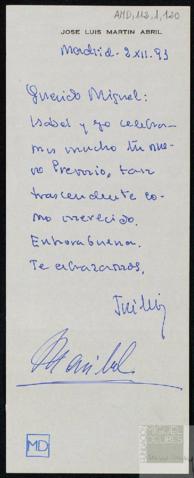 AMD,112,1,120
JOSE LUIS MARTIN ABRIL
Madrid - 2 XII. 93
Querido Miguel:
Isabel y yo celebra-
mos mucho tu nue-
vo Premio, tan
trascendente co-
mo merecido.
Enhorabuena.
Te abrazamos,
MD
FUNDACIÓN
MIGUEL
DELIBES